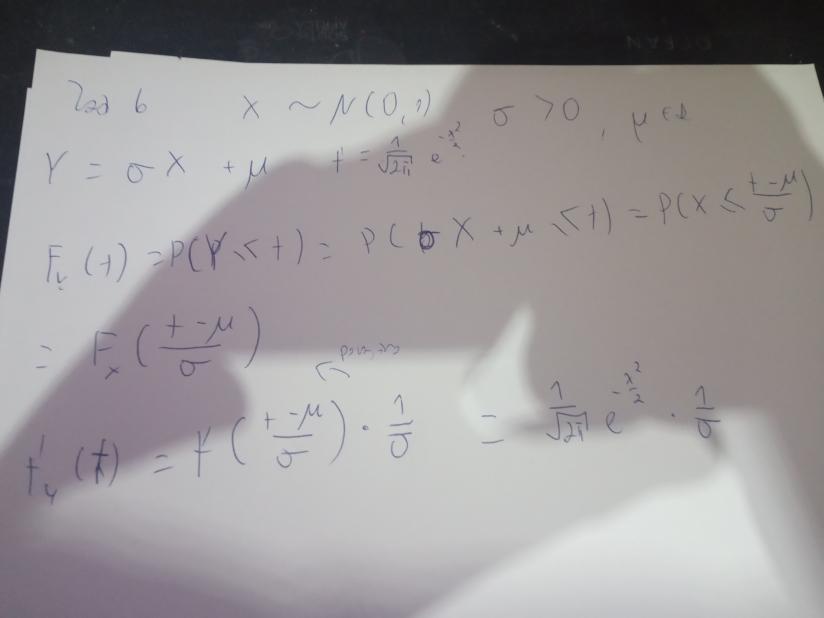 Zad 6 X ~ N(0,1) σ > 0, μ ∈ ℝ
Y = σX + μ f = 1/√2π e^(-x²/2)
F_Y(t) = P(Y ≤ t) = P(σX + μ ≤ t) = P(X ≤ (t-μ)/σ)
= F_X((t-μ)/σ)
f'_Y(t) = f((t-μ)/σ) · 1/σ = 1/√2π e^(-x²/2) · 1/σ